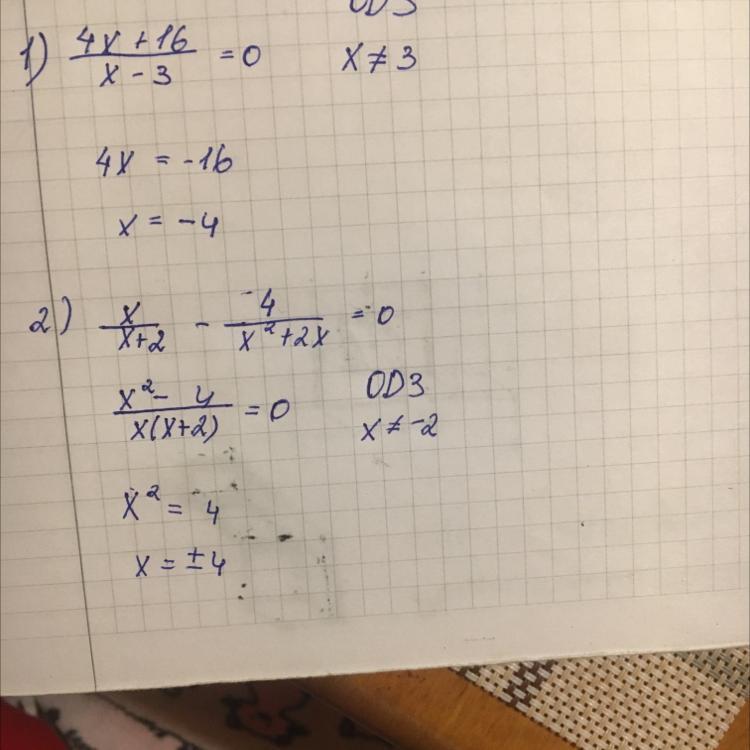 ODЗ
1) (4x + 16)/(x - 3) = 0 x ≠ 3
4x = -16
x = -4
2) x/(x+2) - 4/(x² + 2x) = 0
(x² - 4)/(x(x+2)) = 0 ODЗ
x ≠ -2
x² = 4
x = ±4